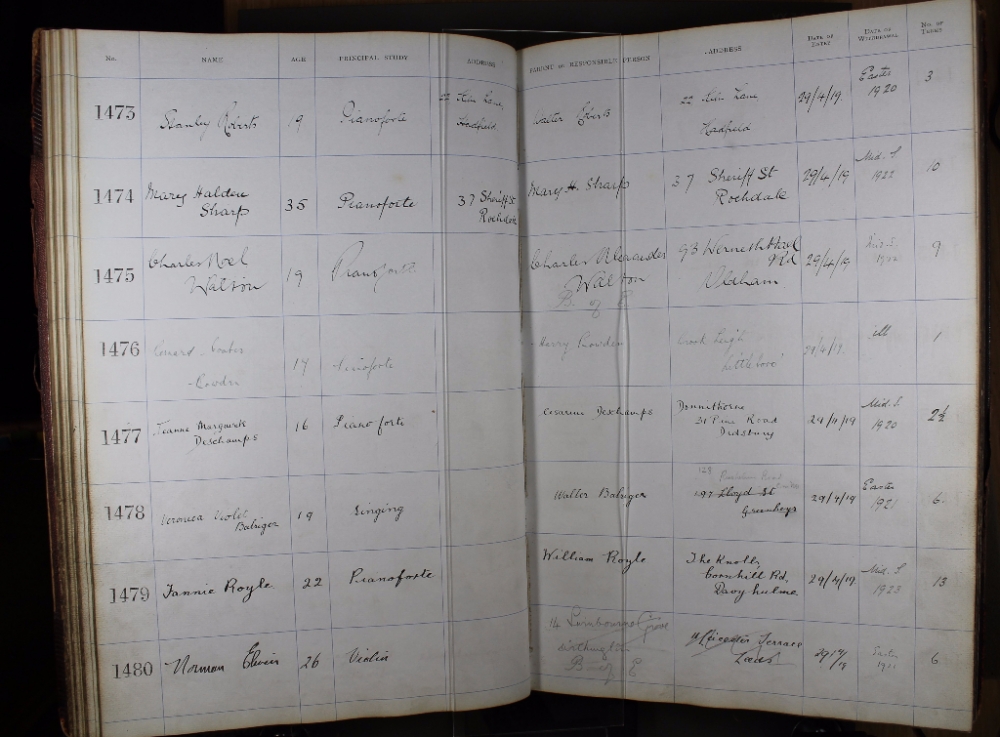 No. NAME AGE PRINCIPAL STUDY ADDRESS PARENT OR RESPONSIBLE PERSON ADDRESS DATE OF ENTRY DATE OF WITHDRAWAL NO. OF TERMS
1473 Stanley Roberts 19 Pianoforte 22 Lane, Hadfield Walter 22 Lane Hadfield 29/4/19 Easter 1920 3
1474 Mary Halden Sharp 35 Pianoforte 37 Sheriff St Rochdale Mary H. Sharp 37 Sheriff St Rochdale 29/4/19 Mid. S 1922 10
1475 Charles Noel Walton 19 Pianoforte Charles Alexander Walton B of E 93 Werneth Hall Rd Oldham 29/4/19 9
1476 17 Pianoforte Harry Littleboro' 29/4/19 ill 1
1477 Jeanne Marguerite Deschamps 16 Pianoforte Deschamps Donnithorne 31 Pine Road Didsbury 29/4/19 Mid. S. 1920 2½
1478 Veronica Violet Balsiger 19 Singing Walter Balsiger 129 Road 197 Lloyd St Greenheys 29/4/19 Easter 1921 6
1479 Fannie Royle 22 Pianoforte William Royle The Knolls, Cornhill Rd, Davyhulme 29/4/19 Mid. S 1923 13
1480 Norman 26 Violin 14 Grove Withington B of E Leicester Terrace Leeds 29/4/19 Easter 6